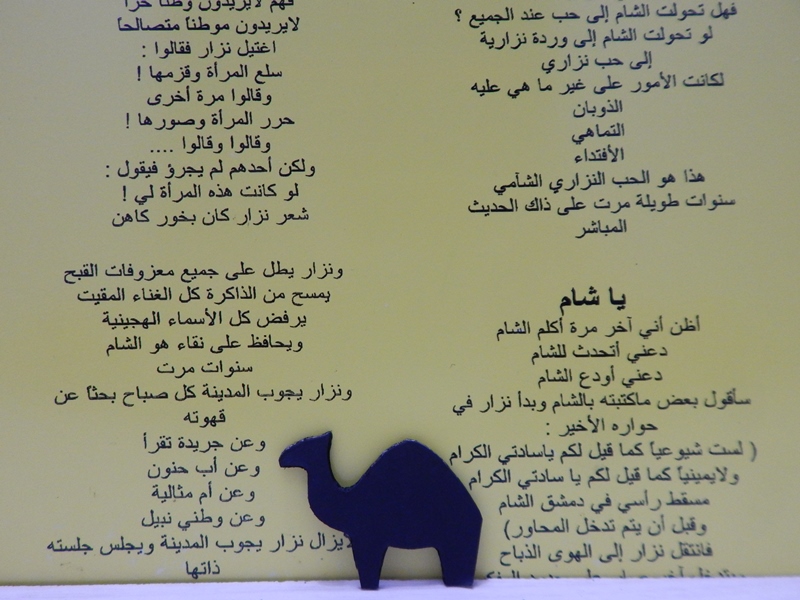 فهل تحولت الشام إلى حب عند الجميع ؟
لو تحولت الشام إلى وردة نزارية
إلى حب نزاري
لكانت الأمور على غير ما هي عليه
الذوبان
التماهي
الأفتداء
هذا هو الحب النزاري الشآمي
سنوات طويلة مرت على ذاك الحديث
المباشر
يا شام
أظن أني آخر مرة أكلم الشام
دعني أتحدث للشام
دعني أودع الشام
سأقول بعض ماكتبته بالشام وبدأ نزار في
حواره الأخير :
( لست شيوعياً كما قيل لكم ياسادتي الكرام
ولايمينياً كما قيل لكم يا سادتي الكرام
مسقط رأسي في دمشق الشام
وقبل أن يتم تدخل المحاور)
فانتقل نزار إلى الهوى الذباح
فهم لايريدون وطناً حراً
لايريدون موطناً متصالحاً
اغتيل نزار فقالوا :
سلع المرأة وقزمها !
وقالوا مرة أخرى
حرر المرأة وصورها !
وقالوا وقالوا ....
ولكن أحدهم لم يجرؤ فيقول :
لو كانت هذه المرأة لي !
شعر نزار كان بخور كاهن
ونزار يطل على جميع معزوفات القبح
يمسح من الذاكرة كل الغناء المقيت
يرفض كل الأسماء الهجينية
ويحافظ على نقاء هو الشام
سنوات مرت
ونزار يجوب المدينة كل صباح بحثاً عن
قهوته
وعن جريدة تقرأ
وعن أب حنون
وعن أم مثالية
وعن وطني نبيل
لايزال نزار يجوب المدينة ويجلس جلسته
ذاتها